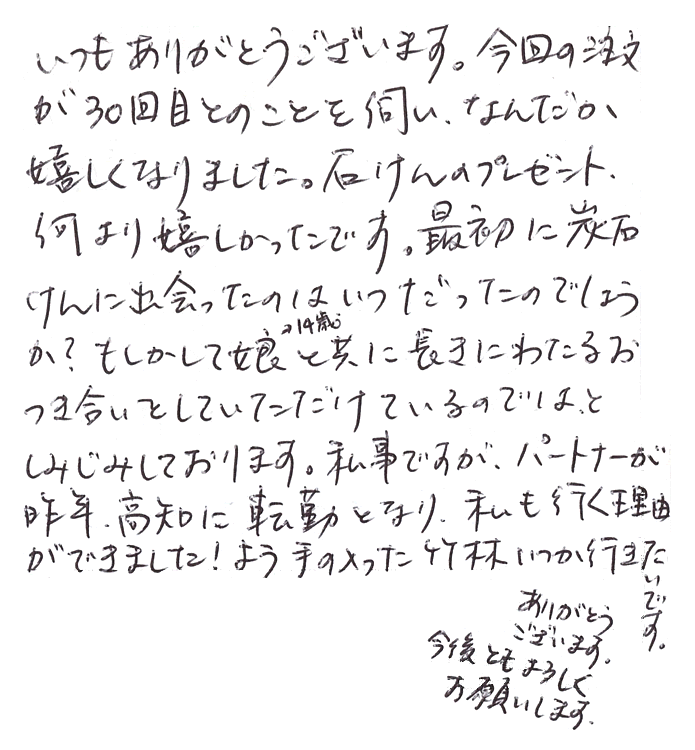 いつもありがとうございます。今回の注文
が30回目とのことを伺い、なんだか、
嬉しくなりました。石けんのプレゼント、
何より嬉しかったです。最初に炭石
けんに出会ったのはいつだったのでしょう
か？もしかして娘(14歳)と共に長きにわたるお
つき合いとしていただけているのでは、と
しみじみしております。私事ですが、パートナーが
昨年、高知に転勤となり、私も行く理由
ができました！よう手の入った竹林いつか行きたいです。
ありがとう
ございます。
今後ともよろしく
お願いします。